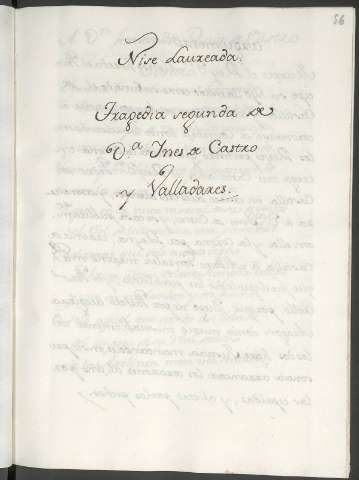 56
Nise Laureada.
Tragedia segunda de
D.ª Ines de Castro
y Valladares.